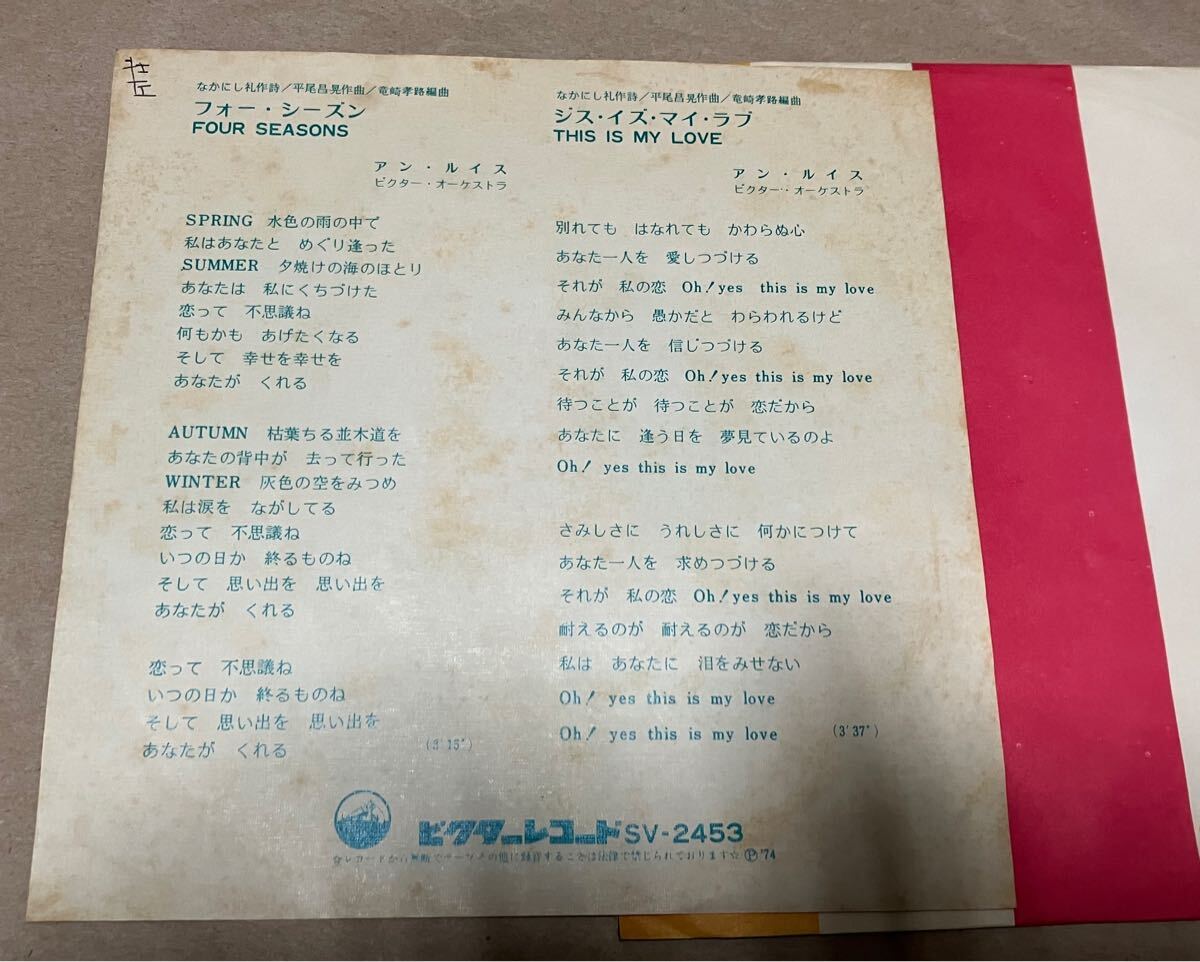 なかにし礼作詩/平尾昌晃作曲/竜崎孝路編曲
フォー・シーズン
FOUR SEASONS
アン・ルイス
ビクター・オーケストラ
SPRING 水色の雨の中で
私はあなたと めぐり逢った
SUMMER 夕焼けの海のほとり
あなたは 私にくちづけた
恋って 不思議ね
何もかも あげたくなる
そして 幸せを幸せを
あなたが くれる
AUTUMN 枯葉ちる並木道を
あなたの背中が 去って行った
WINTER 灰色の空をみつめ
私は涙を ながしてる
恋って 不思議ね
いつの日か 終るものね
そして 思い出を 思い出を
あなたが くれる
恋って 不思議ね
いつの日か 終るものね
そして 思い出を 思い出を
あなたが くれる
(3′15″)
なかにし礼作詩/平尾昌晃作曲/竜崎孝路編曲
ジス・イズ・マイ・ラブ
THIS IS MY LOVE
アン・ルイス
ビクター・オーケストラ
別れても はなれても かわらぬ心
あなた一人を 愛しつづける
それが 私の恋 Oh! yes this is my love
みんなから 愚かだと わらわれるけど
あなた一人を 信じつづける
それが 私の恋 Oh! yes this is my love
待つことが 待つことが 恋だから
あなたに 逢う日を 夢見ているのよ
Oh! yes this is my love
さみしさに うれしさに 何かにつけて
あなた一人を 求めつづける
それが 私の恋 Oh! yes this is my love
耐えるのが 耐えるのが 恋だから
私は あなたに 泪をみせない
Oh! yes this is my love
Oh! yes this is my love
(3′37″)
ビクターレコード SV-2453
☆レコードから無断でテープその他に録音することは法律で禁じられております☆ Ⓟ'74